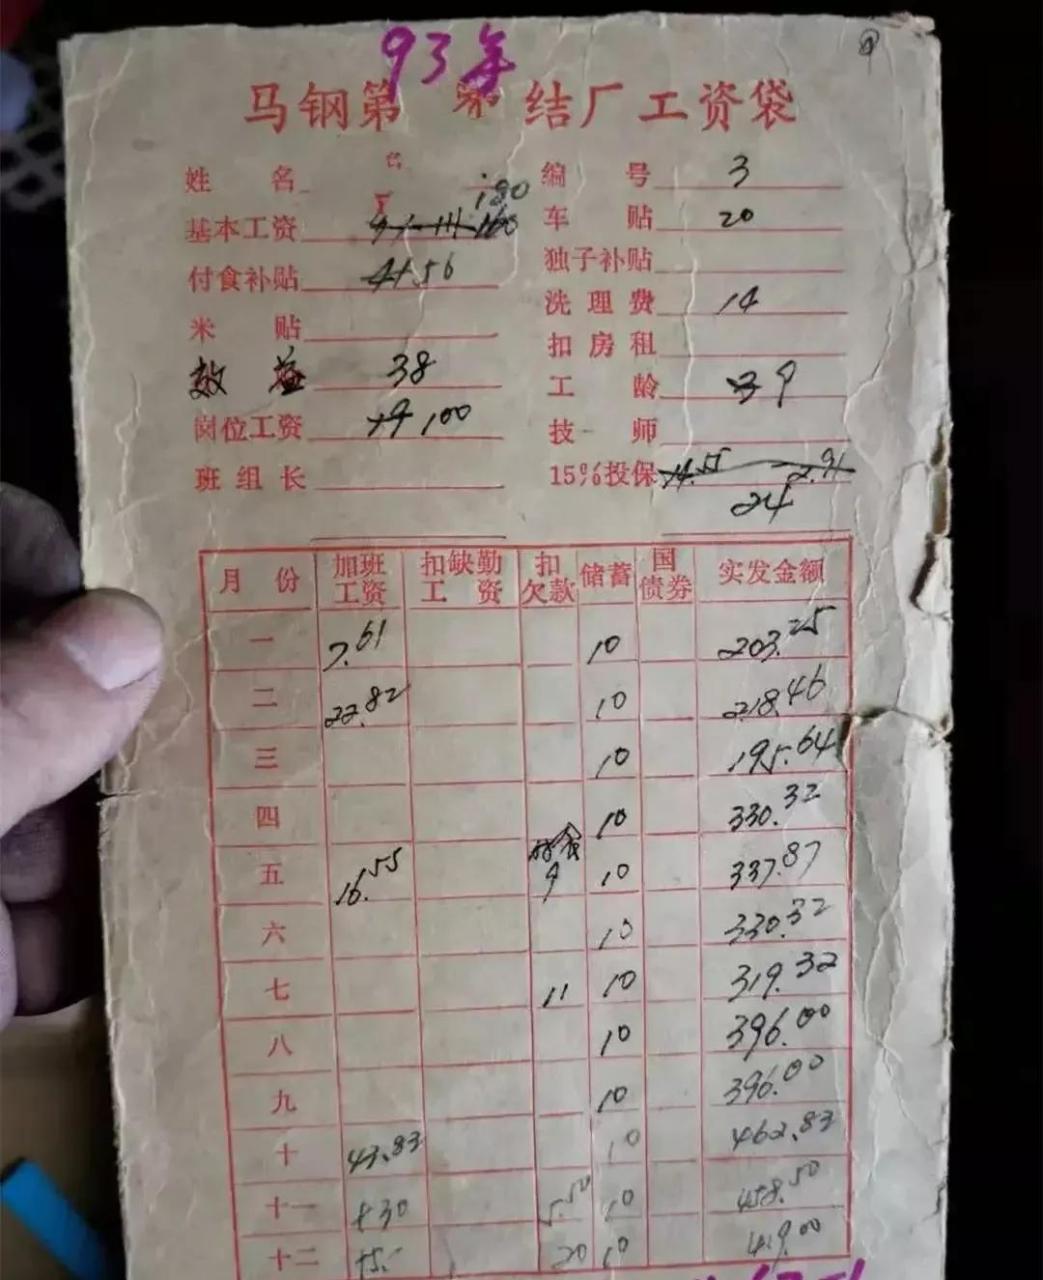 93年
马钢第 结厂工资袋
姓名 编号 3
180
基本工资 160 车贴 20
付食补贴 4156 独子补贴
洗理费 14
米贴 扣房租
效益 38 工龄 39
岗位工资 +9 100 技师
班组长 15%投保 14.55 2.91
24
月份 加班工资 扣缺勤工资 扣欠款 储蓄 国债券 实发金额
一 7.61 10 203.25
二 22.82 10 218.46
三 10 195.64
四 10 330.32
五 16.55 9 10 337.87
六 10 330.32
七 11 10 319.32
八 10 396.00
九 10 396.00
十 43.83 10 462.83
十一 +30 5.50 10 458.50
十二 +5.- 20 10 419.00